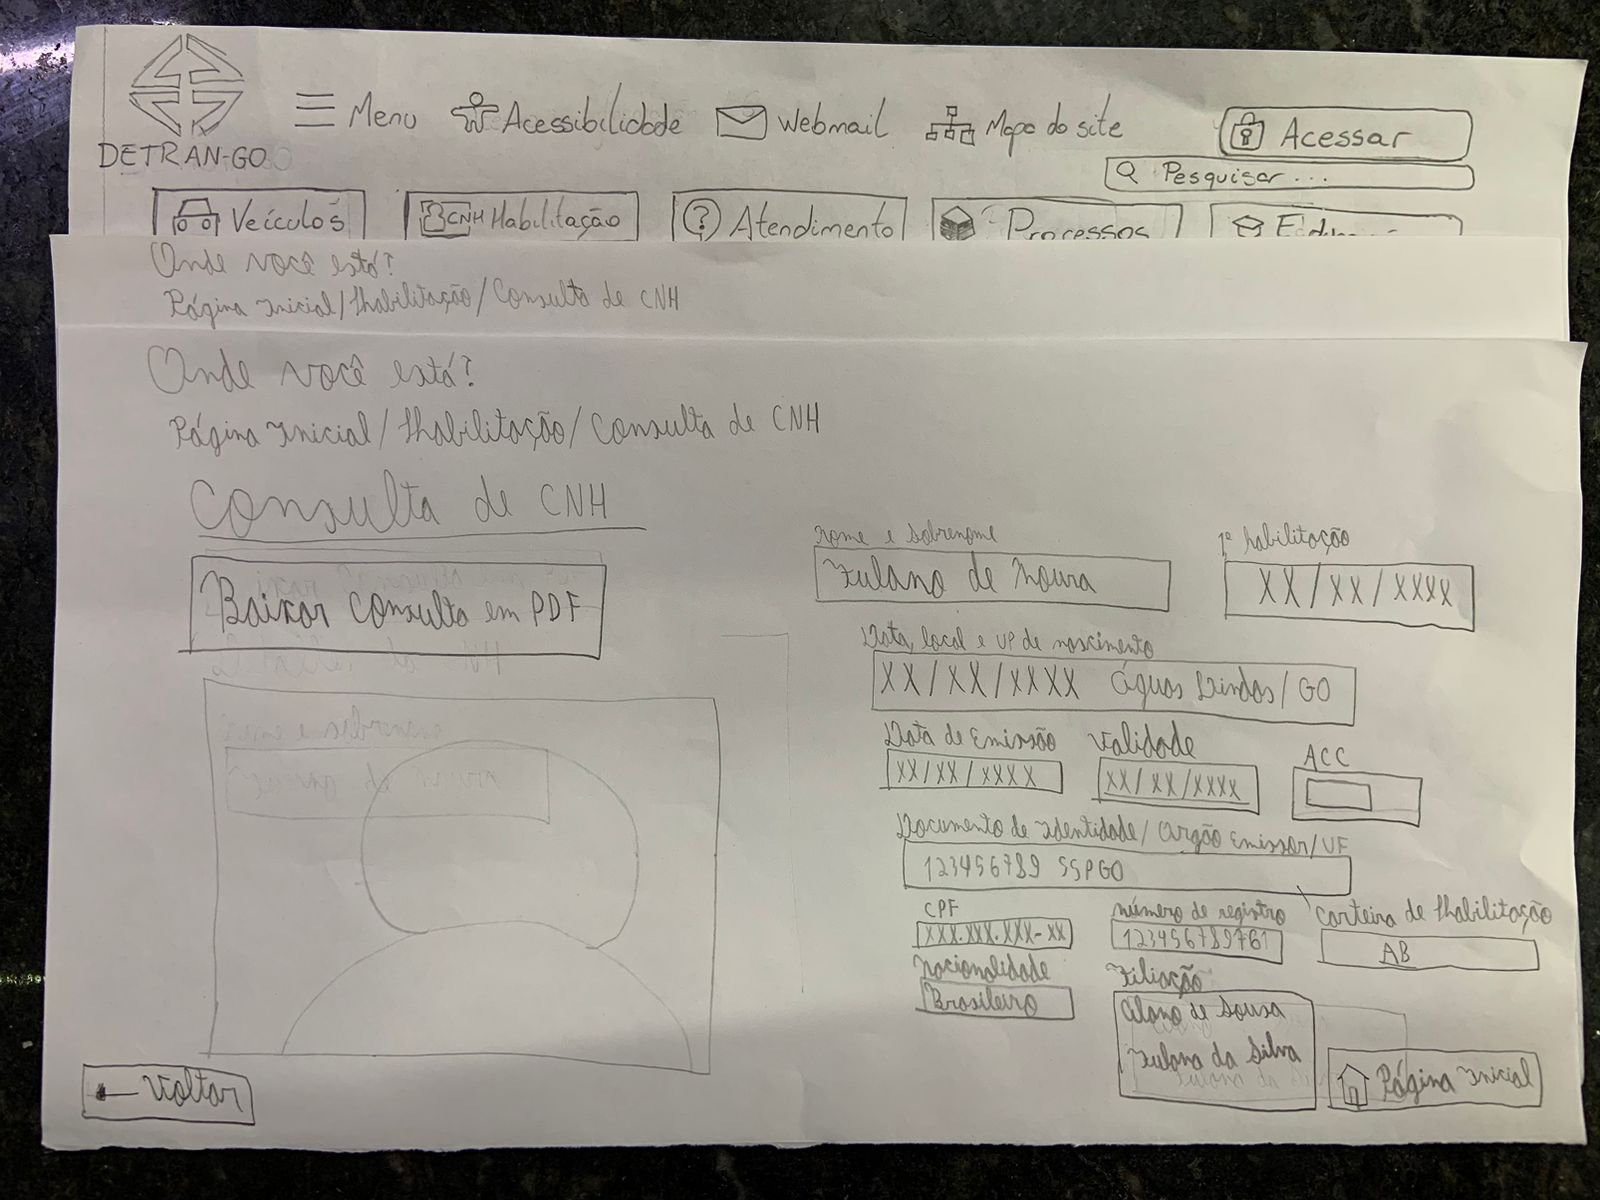 DETRAN-GO
Menu
Acessibilidade
Webmail
Mapa do site
Acessar
Pesquisar...
Veículos
CNH Habilitação
? Atendimento
Processos
Onde você está?
Página Inicial/Habilitação/Consulta de CNH
Onde você está?
Página Inicial/Habilitação/Consulta de CNH
Consulta de CNH
Baixar Consulta em PDF
nome e sobrenome
Fulano de Moura
1ª habilitação
XX/XX/XXXX
Data, local e UF de nascimento
XX/XX/XXXX Águas Lindas/GO
Data de Emissão
XX/XX/XXXX
Validade
XX/XX/XXXX
ACC
Documento de Identidade/Orgão Emissor/UF
123456789 SSPGO
CPF
XXX.XXX.XXX-XX
número de registro
123456789761
carteira de Habilitação
AB
Nacionalidade
Brasileiro
Filiação
de Sousa
Fulana da Silva
Voltar
Página Inicial